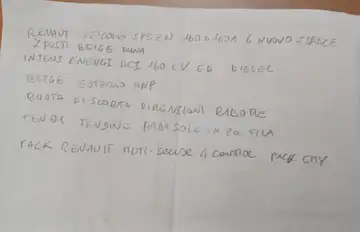 RENAUT SPSZN 160D160A 6 NUOVO SPACE
2 POSTI BEIGE DUNA
INTENS ENERGI DCI 160 CV EDC DIESEL
BEIGE ESTERNO HNP
RUOTA DI SCORTA DIMENSIONI RIDOTTE
TENDI TENDINE PARASOLE IN 2a FILA
PACK RENAULT MUTI-SECUR A CONTROL PACK CITY